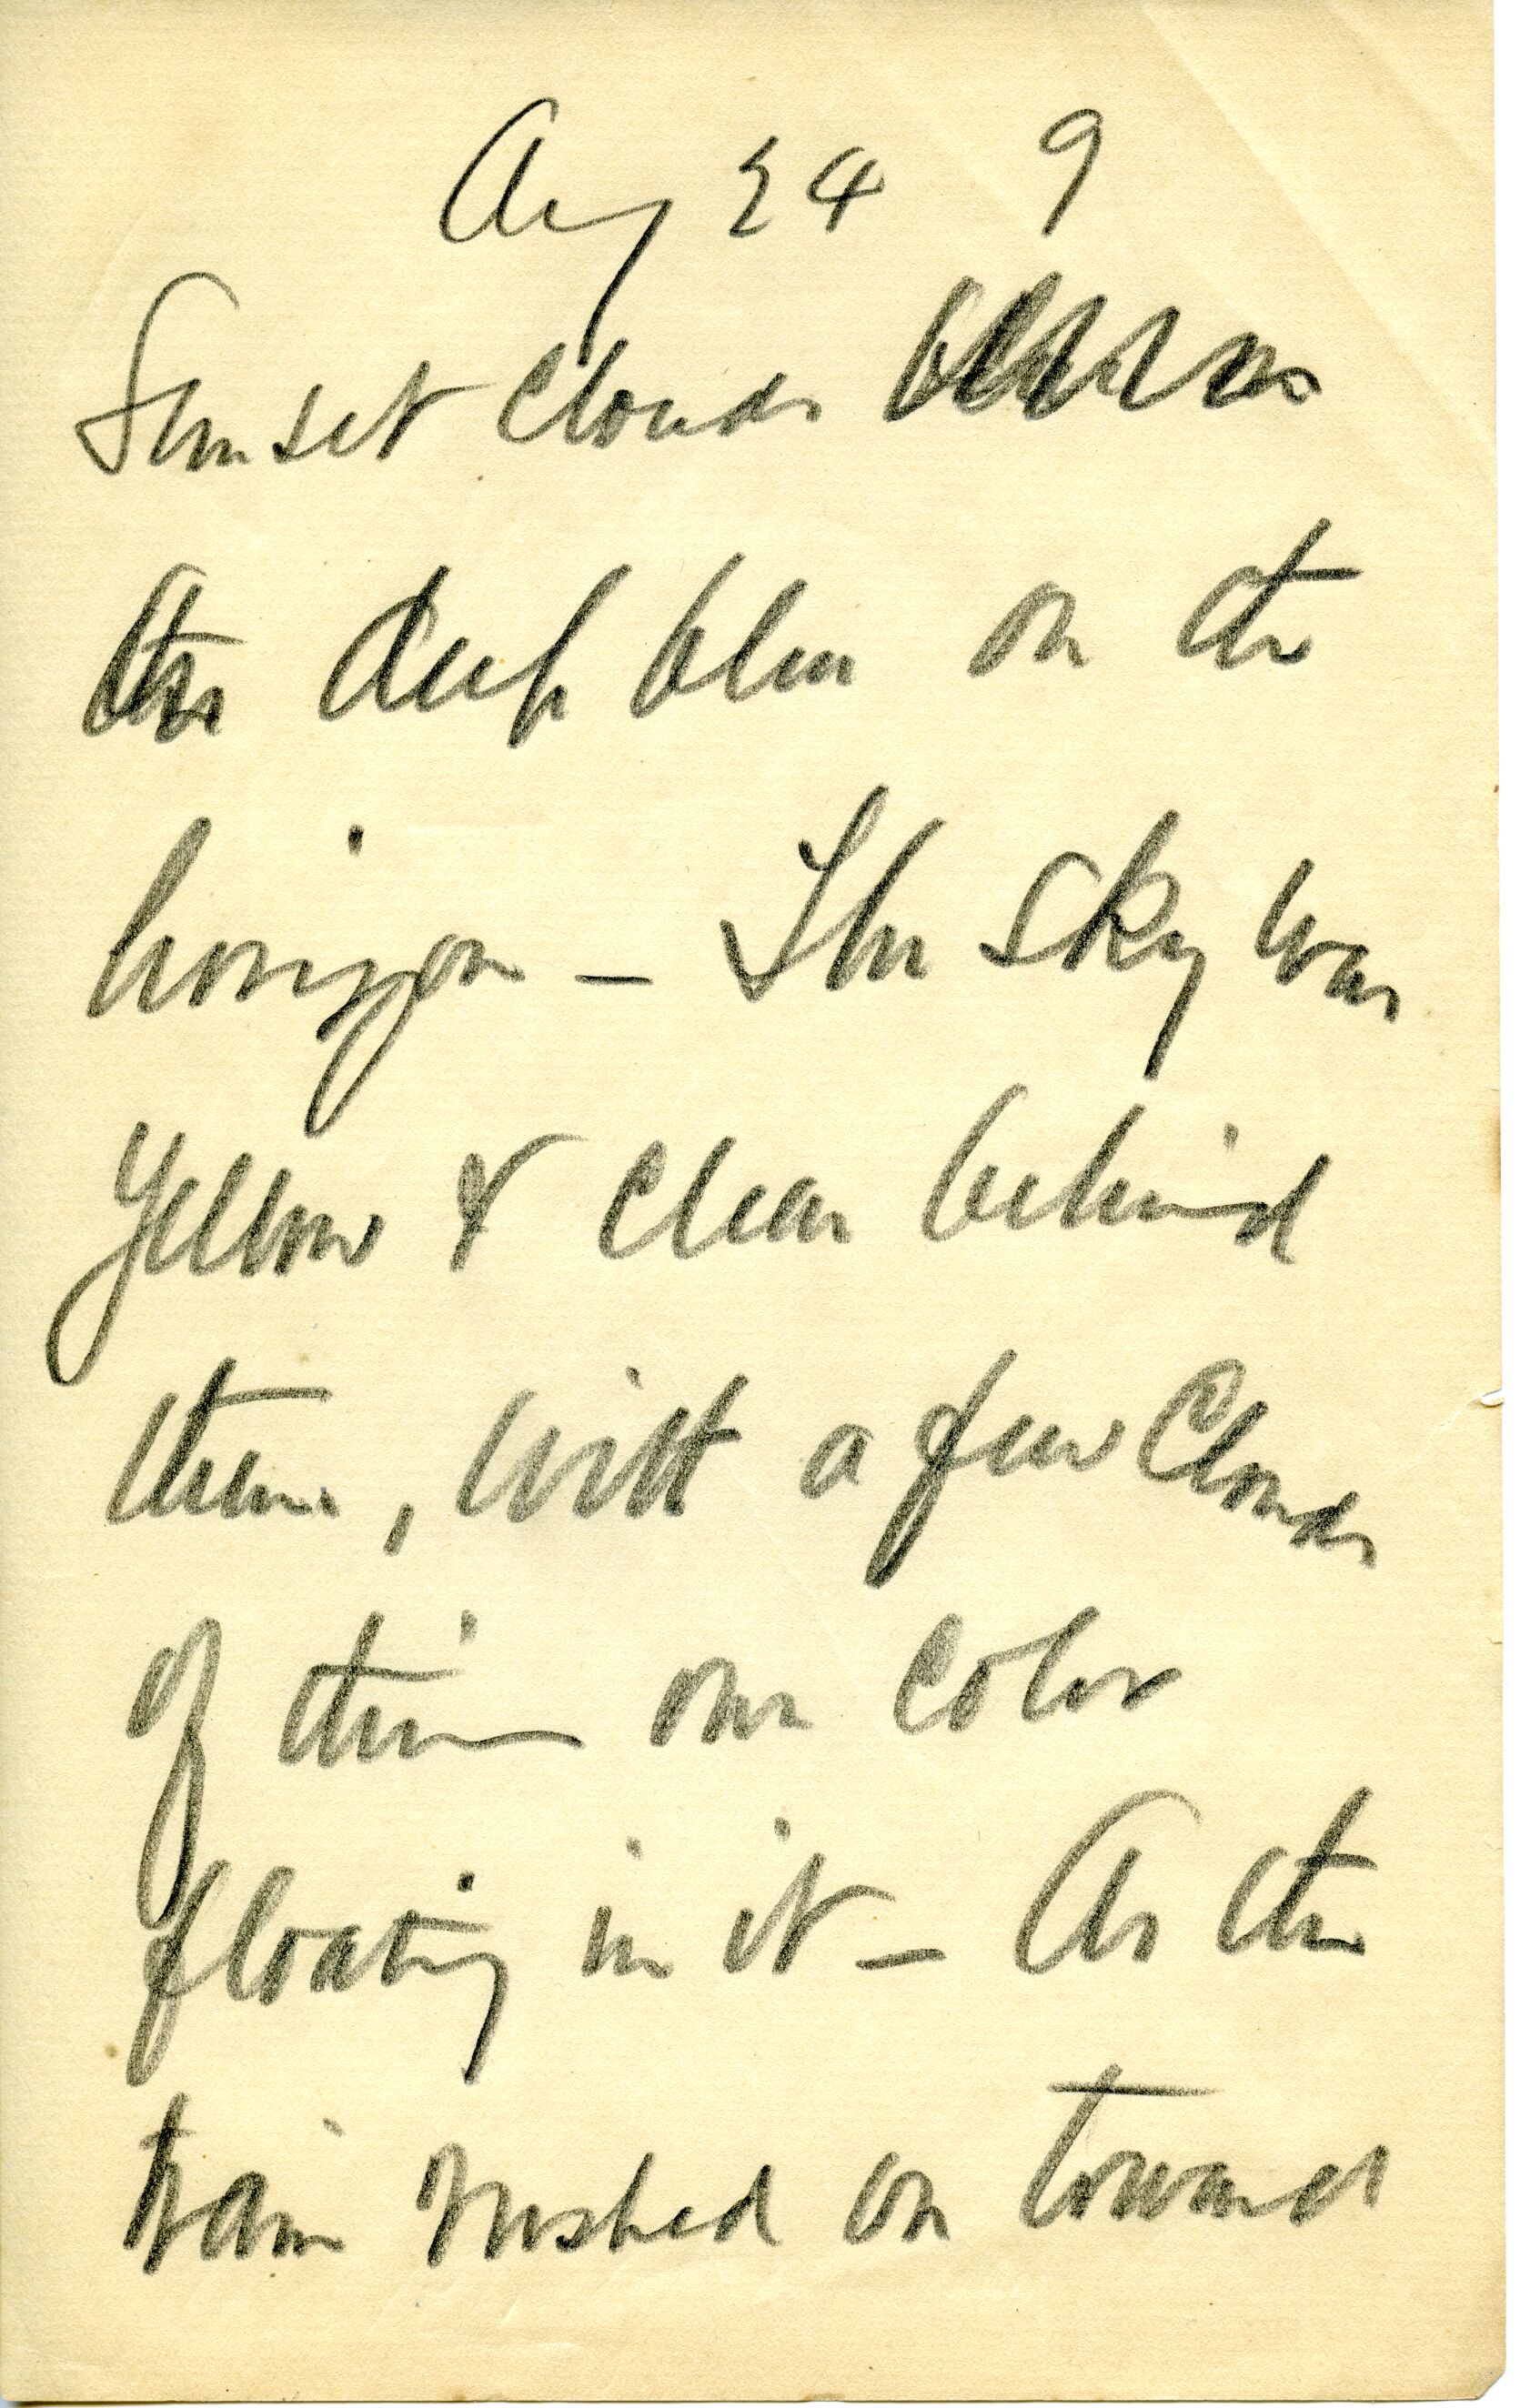 Aug 24 9
Sunset Clouds
the deep blue on the
horizon – The sky was
yellow & clear behind
them, with a few clouds
of their own color
floating in it – As the
train rushed on toward